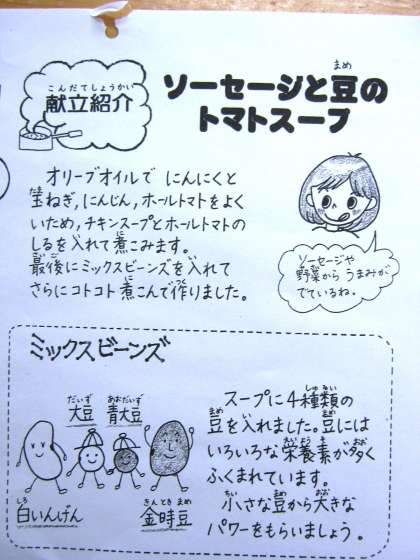 こんだてしょうかい
献立紹介
まめ
ソーセージと豆の
トマトスープ
オリーブオイルで にんにくと
玉ねぎ,にんじん,ホールトマトをよく
いため,チキンスープとホールトマトの
しるを入れて煮こみます。
最後にミックスビーンズを入れて
さらにコトコト煮こんで作りました。
ソーセージや
野菜から うまみが
でているね。
ミックスビーンズ
だいず
大豆
あおだいず
青大豆
しろ
白いんげん
きんとき まめ
金時豆
スープに4種類の
豆を入れました。豆には
いろいろな栄養素が多く
ふくまれています。
小さな豆から大きな
パワーをもらいましょう。